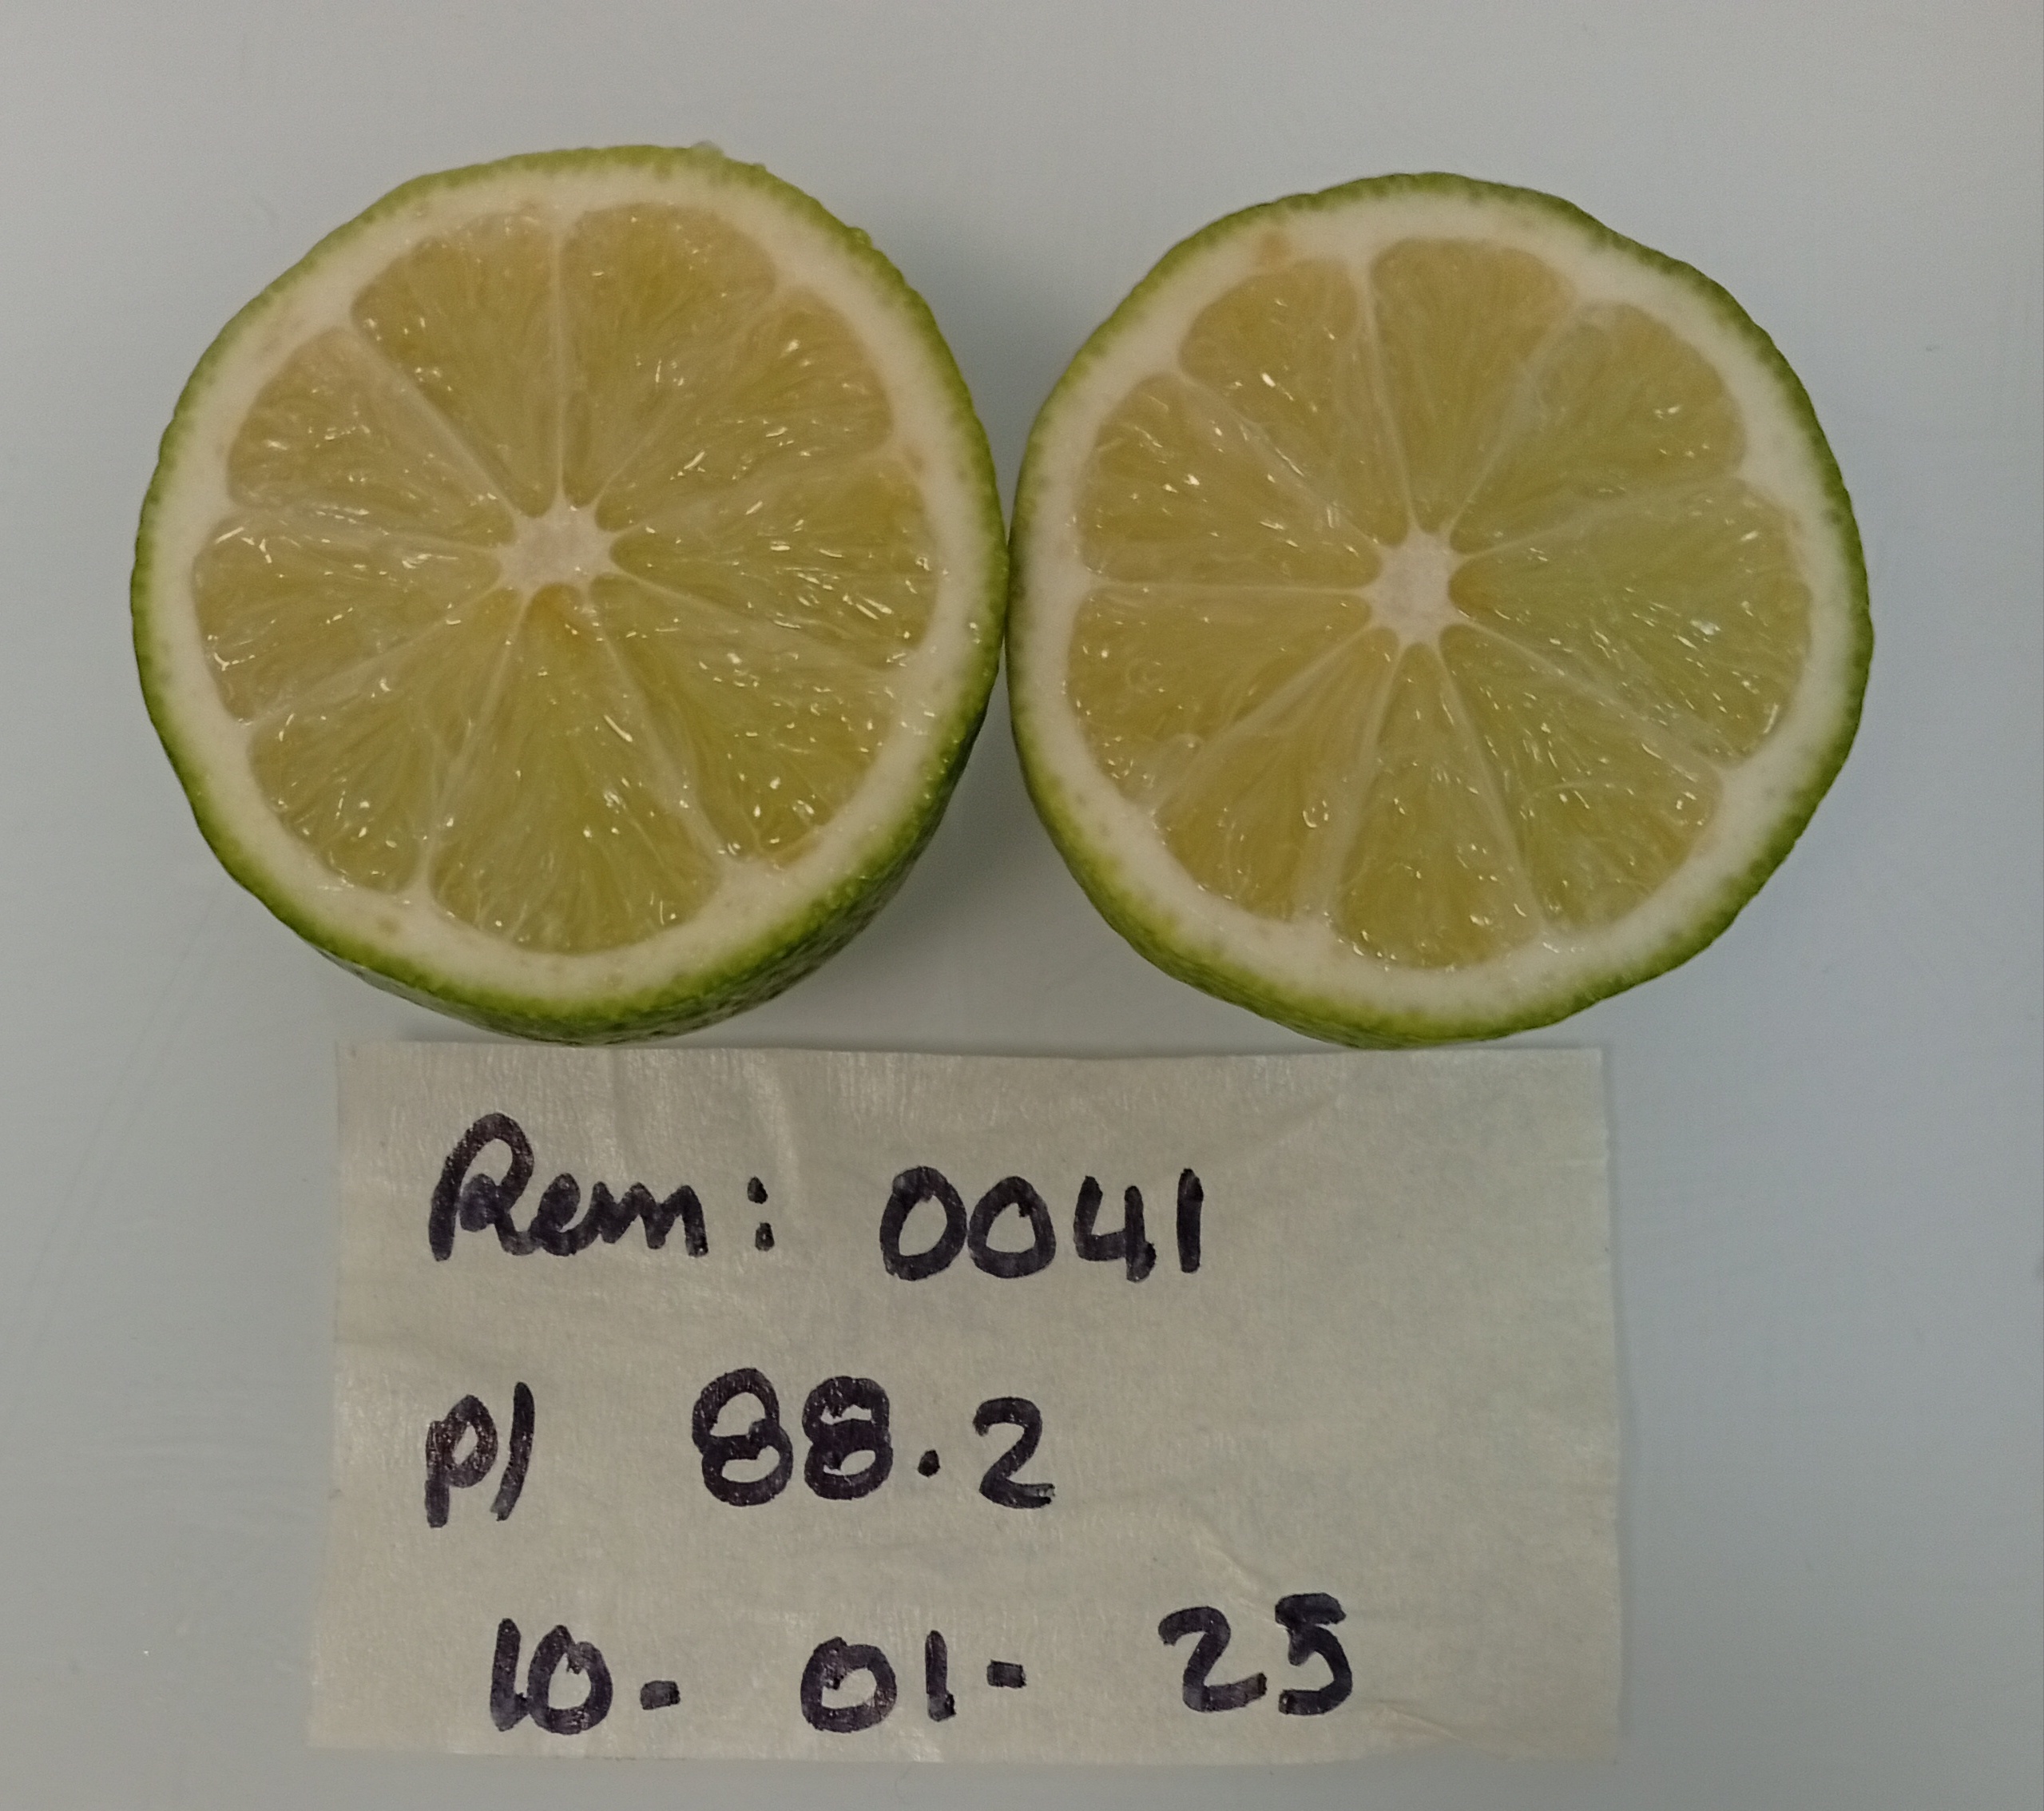 Rem: 0041
pl 88.2
10- 01- 25